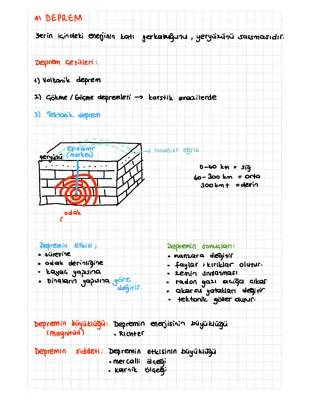 4) DEPREM
Yerin içindeki enerjinin katı yerkabuğunu, yeryüzünü sarsmasıdır.
Deprem Çeşitleri:
1) Volkanik deprem
2) Çökme / Göçme depremleri → karstik arazilerde
3) Tektonik deprem
Episantr
(merkez)
yeryüzü
odak
0-60 km = sığ
60-300 km = orta
300 km ↑ = derin
Depremin etkisi;
• süresine
• odak derinliğine
• kayaç yapısına
• binaların yapısına göre
değişir.
Depremin sonuçları:
• manzara değişir
• faylar, kırıklar oluşur.
• zemin sıvılaşması
• radon gazı açığa çıkar
• akarsu yatakları değişir
• tektonik göller oluşur.
Depremin büyüklüğü: Depremin enerjisinin büyüklüğü
(magnitüd) • Richter
Depremin şiddeti: Depremin etkisinin büyüklüğü
• mercalli ölçeği
ölçeği